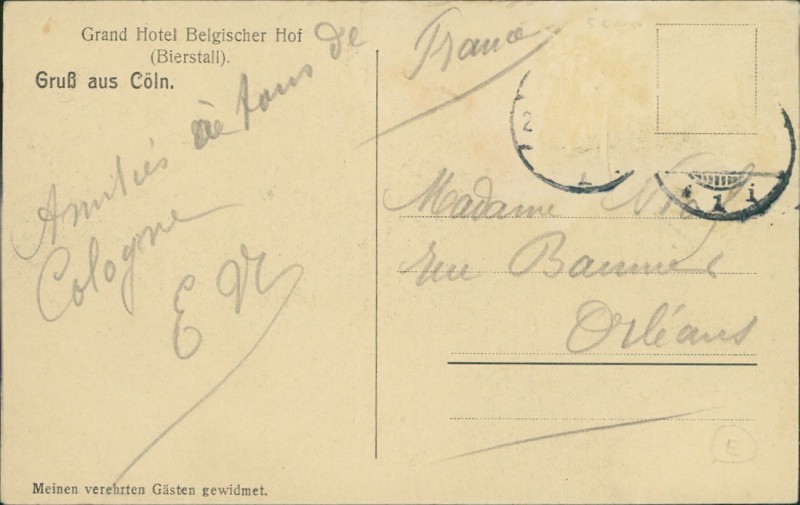 Grand Hotel Belgischer Hof
(Bierstall).
Gruß aus Cöln.
Amitiés à tous de
Cologne
E N
Meinen verehrten Gästen gewidmet.
France
Madame
rue Bannier
Orléans
2
1
1 i
E